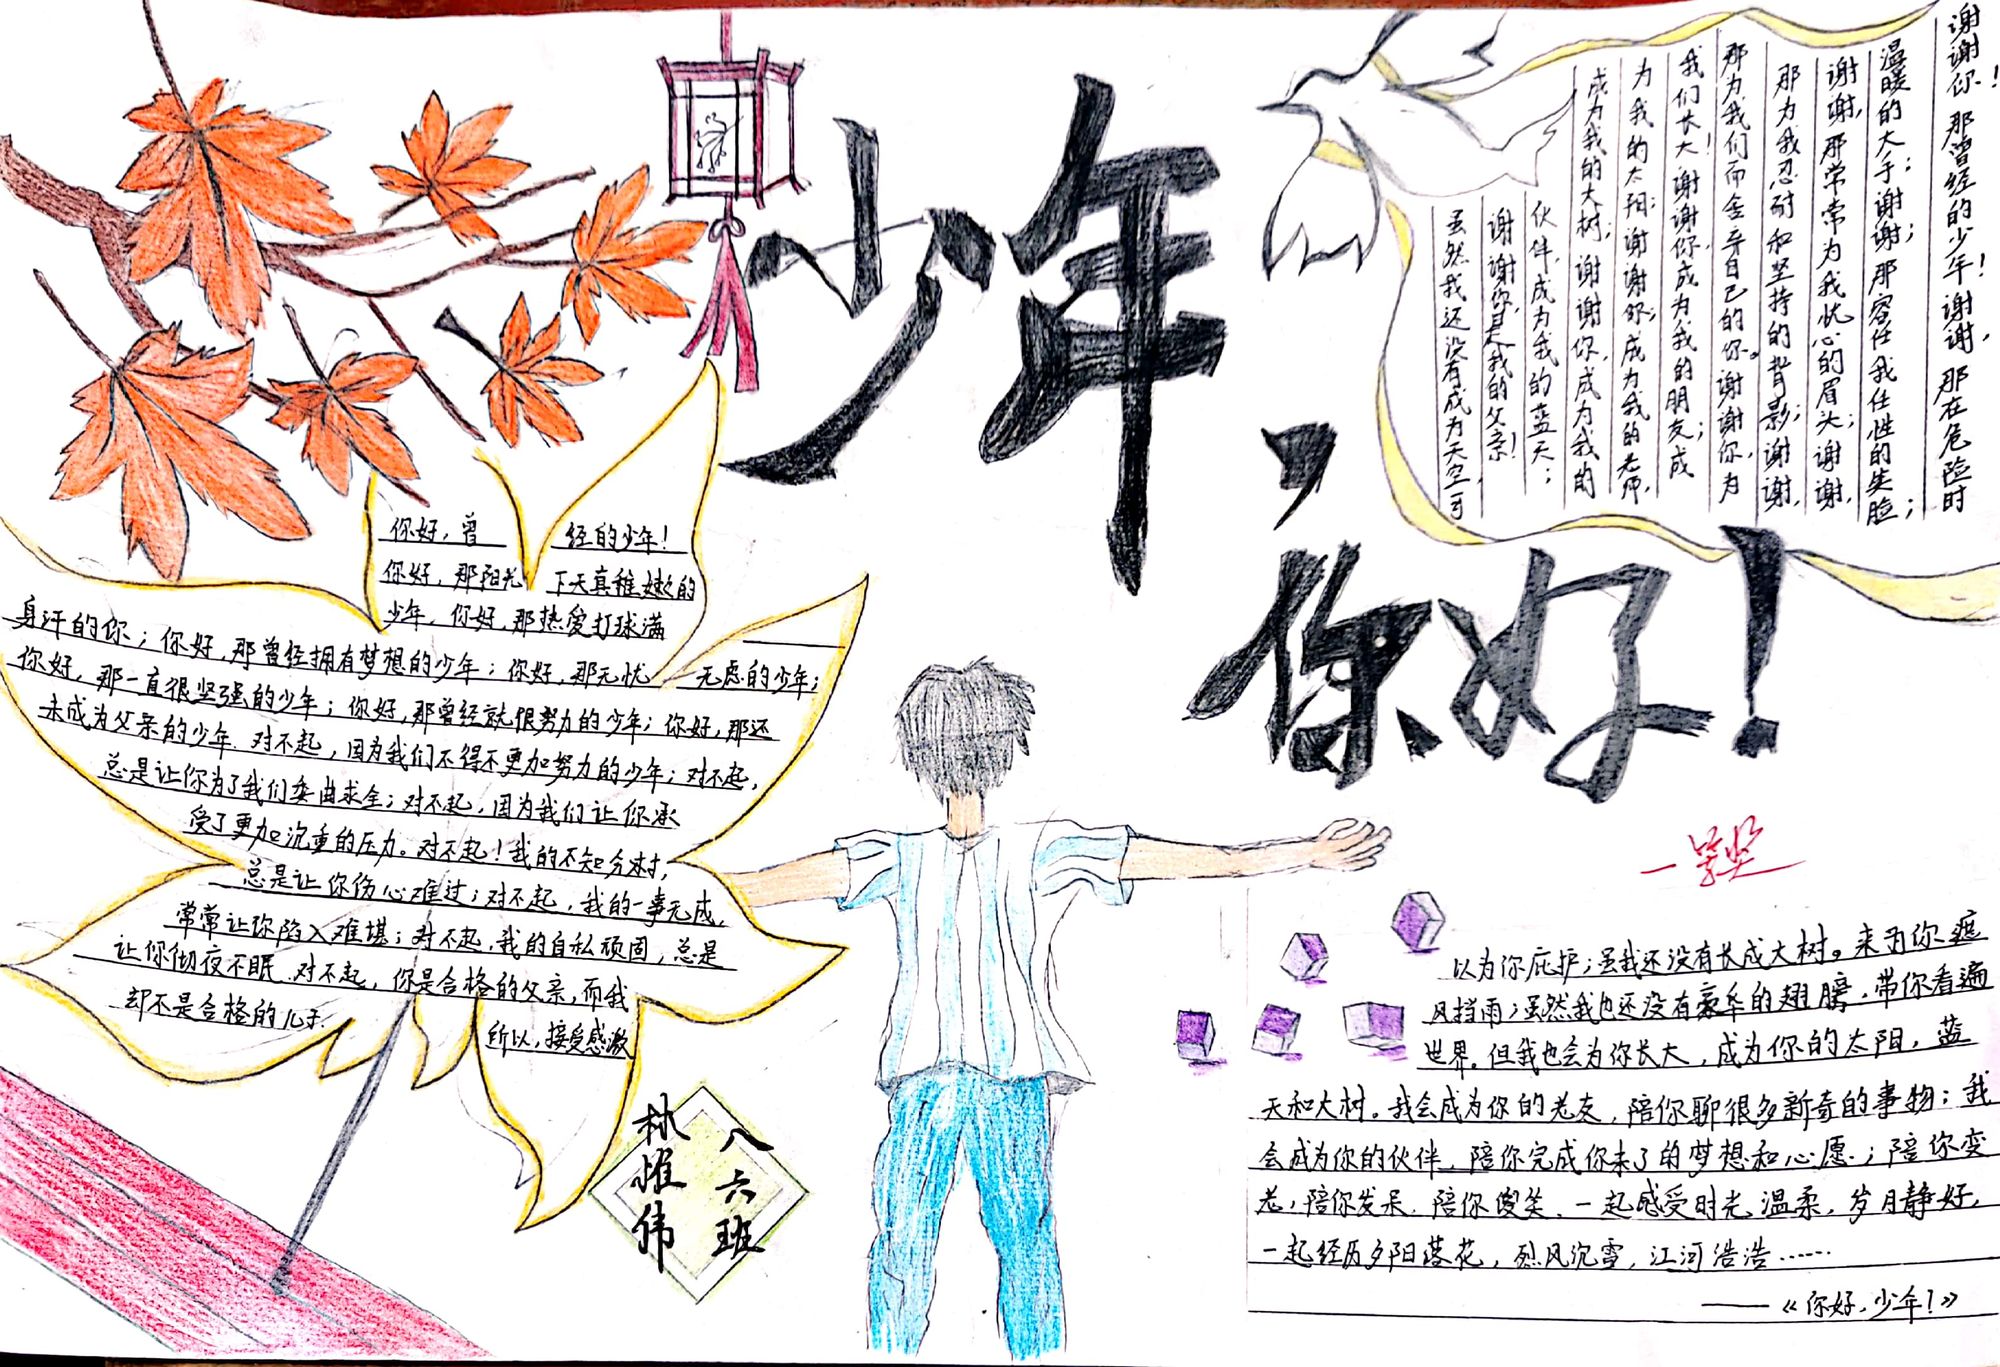 少年，
你好！
你好，曾经的少年！
你好，那阳光下天真稚嫩的
少年，你好，那热爱打球满
身汗的你；你好，那曾经拥有梦想的少年；你好，那无忧无虑的少年；
你好，那一直很坚强的少年；你好，那曾经就很努力的少年；你好，那还
未成为父亲的少年．对不起，因为我们不得不更加努力的少年；对不起，
总是让你为了我们委曲求全；对不起，因为我们让你承
受了更加沉重的压力。对不起！我的不知分寸，
总是让你伤心难过；对不起，我的一事无成，
常常让你陷入难堪；对不起，我的自私顽固，总是
让你彻夜不眠．对不起，你是合格的父亲，而我
却不是合格的儿子．
所以，接受感激
谢谢你！那曾经的少年！谢谢，那在危险时
温暖的大手；谢谢；那容任我任性的笑脸；
谢谢，那常常为我忧心的眉头；谢谢，
那为我忍耐和坚持的背影；谢谢，
那为我们而舍弃自己的你。谢谢你，为
我们长大！谢谢你，成为我的朋友；成
为我的太阳；谢谢你；成为我的老师，
成为我的大树；谢谢你，成为我的
伙伴，成为我的蓝天；
谢谢你，是我的父亲！
虽然我还没有成为天空，可
以为你庇护；虽我还没有长成大树。来为你遮
风挡雨；虽然我也还没有豪华的翅膀，带你看遍
世界。但我也会为你长大，成为你的太阳，蓝
天和大树。我会成为你的老友，陪你聊很多新奇的事物；我
会成为你的伙伴，陪你完成你未了的梦想和心愿；陪你变
老，陪你发呆．陪你傻笑．一起感受时光温柔，岁月静好，
一起经历夕阳落花，烈风沉雪，江河浩浩……
——《你好，少年！》
八六班
林惟伟